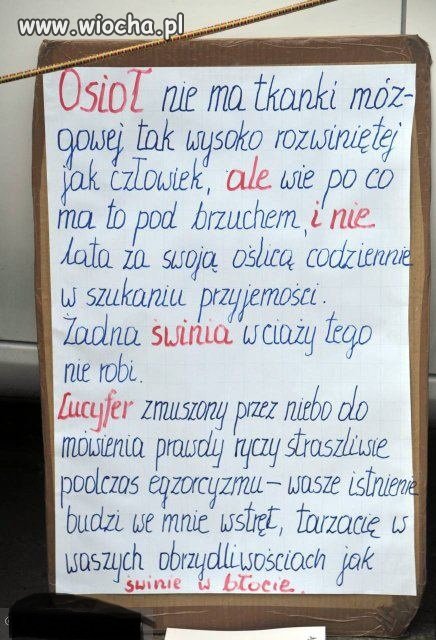 www.wiocha.pl
Osioł nie ma tkanki móz-
gowej tak wysoko rozwiniętej
jak człowiek, ale wie po co
ma to pod brzuchem, i nie
lata za swoją oślicą codziennie
w szukaniu przyjemości.
Żadna świnia w ciaży tego
nie robi.
Lucyfer zmuszony przez niebo do
mówienia prawdy ryczy straszliwie
podczas egzorcyzmu – wasze istnienie
budzi we mnie wstręt, tarzacię w
waszych obrzydliwościach jak
świnie w błocie.